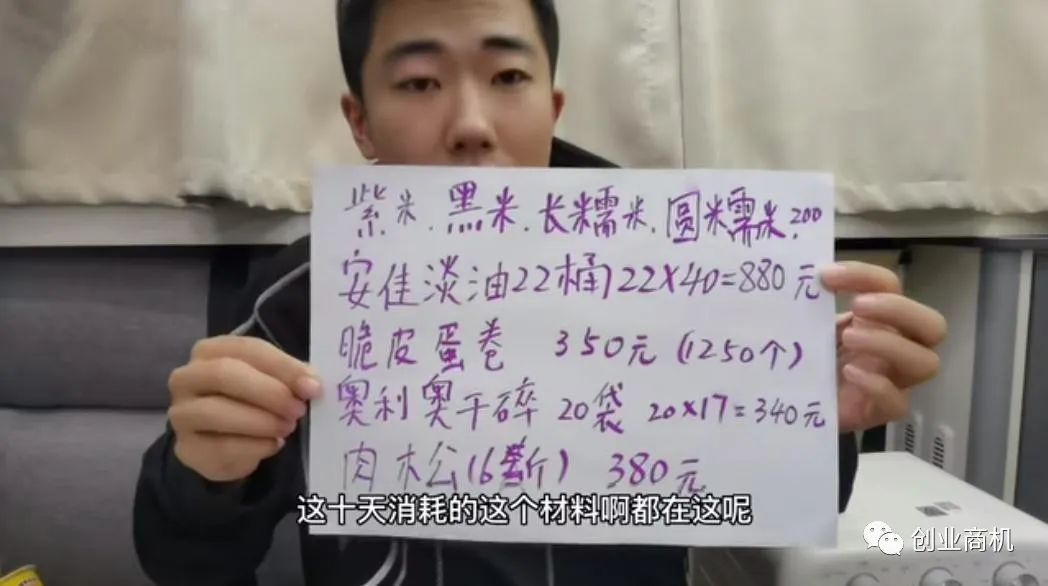 紫米.黑米.长糯米.圆糯米.200
安佳淡油22桶22X40=880元
脆皮蛋卷 350元(1250个)
奥利奥干碎 20袋 20X17=340元
肉松(6斤) 380元
这十天消耗的这个材料啊都在这呢
创业商机